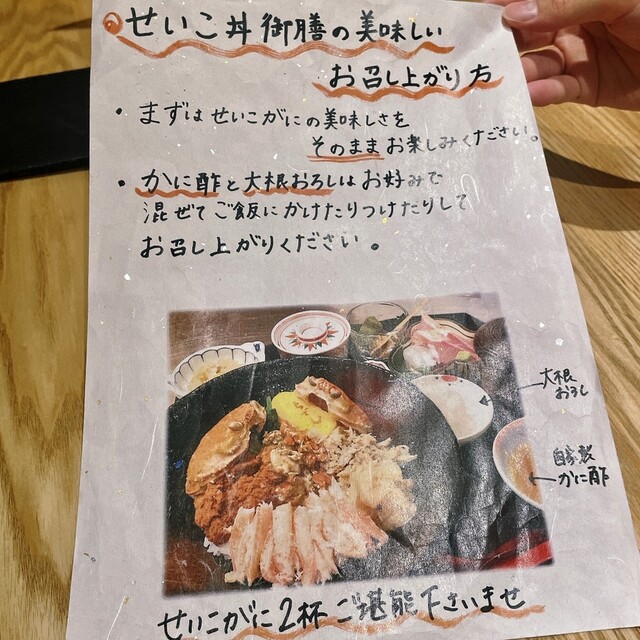 せいこ丼御膳の美味しい
お召し上がり方
・まずはせいこがにの美味しさを
そのままお楽しみください。
・かに酢と大根おろしはお好みで
混ぜてご飯にかけたりつけたりして
お召し上がりください。
大根
おろし
自家製
かに酢
せいこがに2杯ご堪能下さいませ